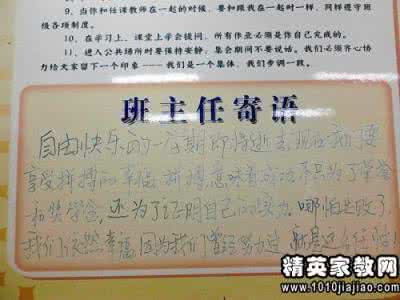 9、当你和任课教师在一起的时候,要和跟我在一起时一样,同样遵守班
级各项制度。
10、在学习上,课堂上学会提问,所有作业必须是你自己完成的。
11、进入公共场所时要保持安静;集会期间不要说话。我们必须齐心协
力给大家留下一个印象——我们是一个集体,我们步调一致。
班主任寄语
自由快乐的一星期即将逝去现在我们要
享受拼搏的幸福 拼搏 意味着成功 不只为了荣誉
和奖学金,还为了证明自己的实力。哪怕失败了
我们依然幸福,因为我们曾经努力过
精英家教网
www.1010jiajiao.com